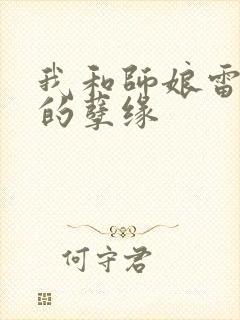 我和師娘雷
的孽缘
何守君